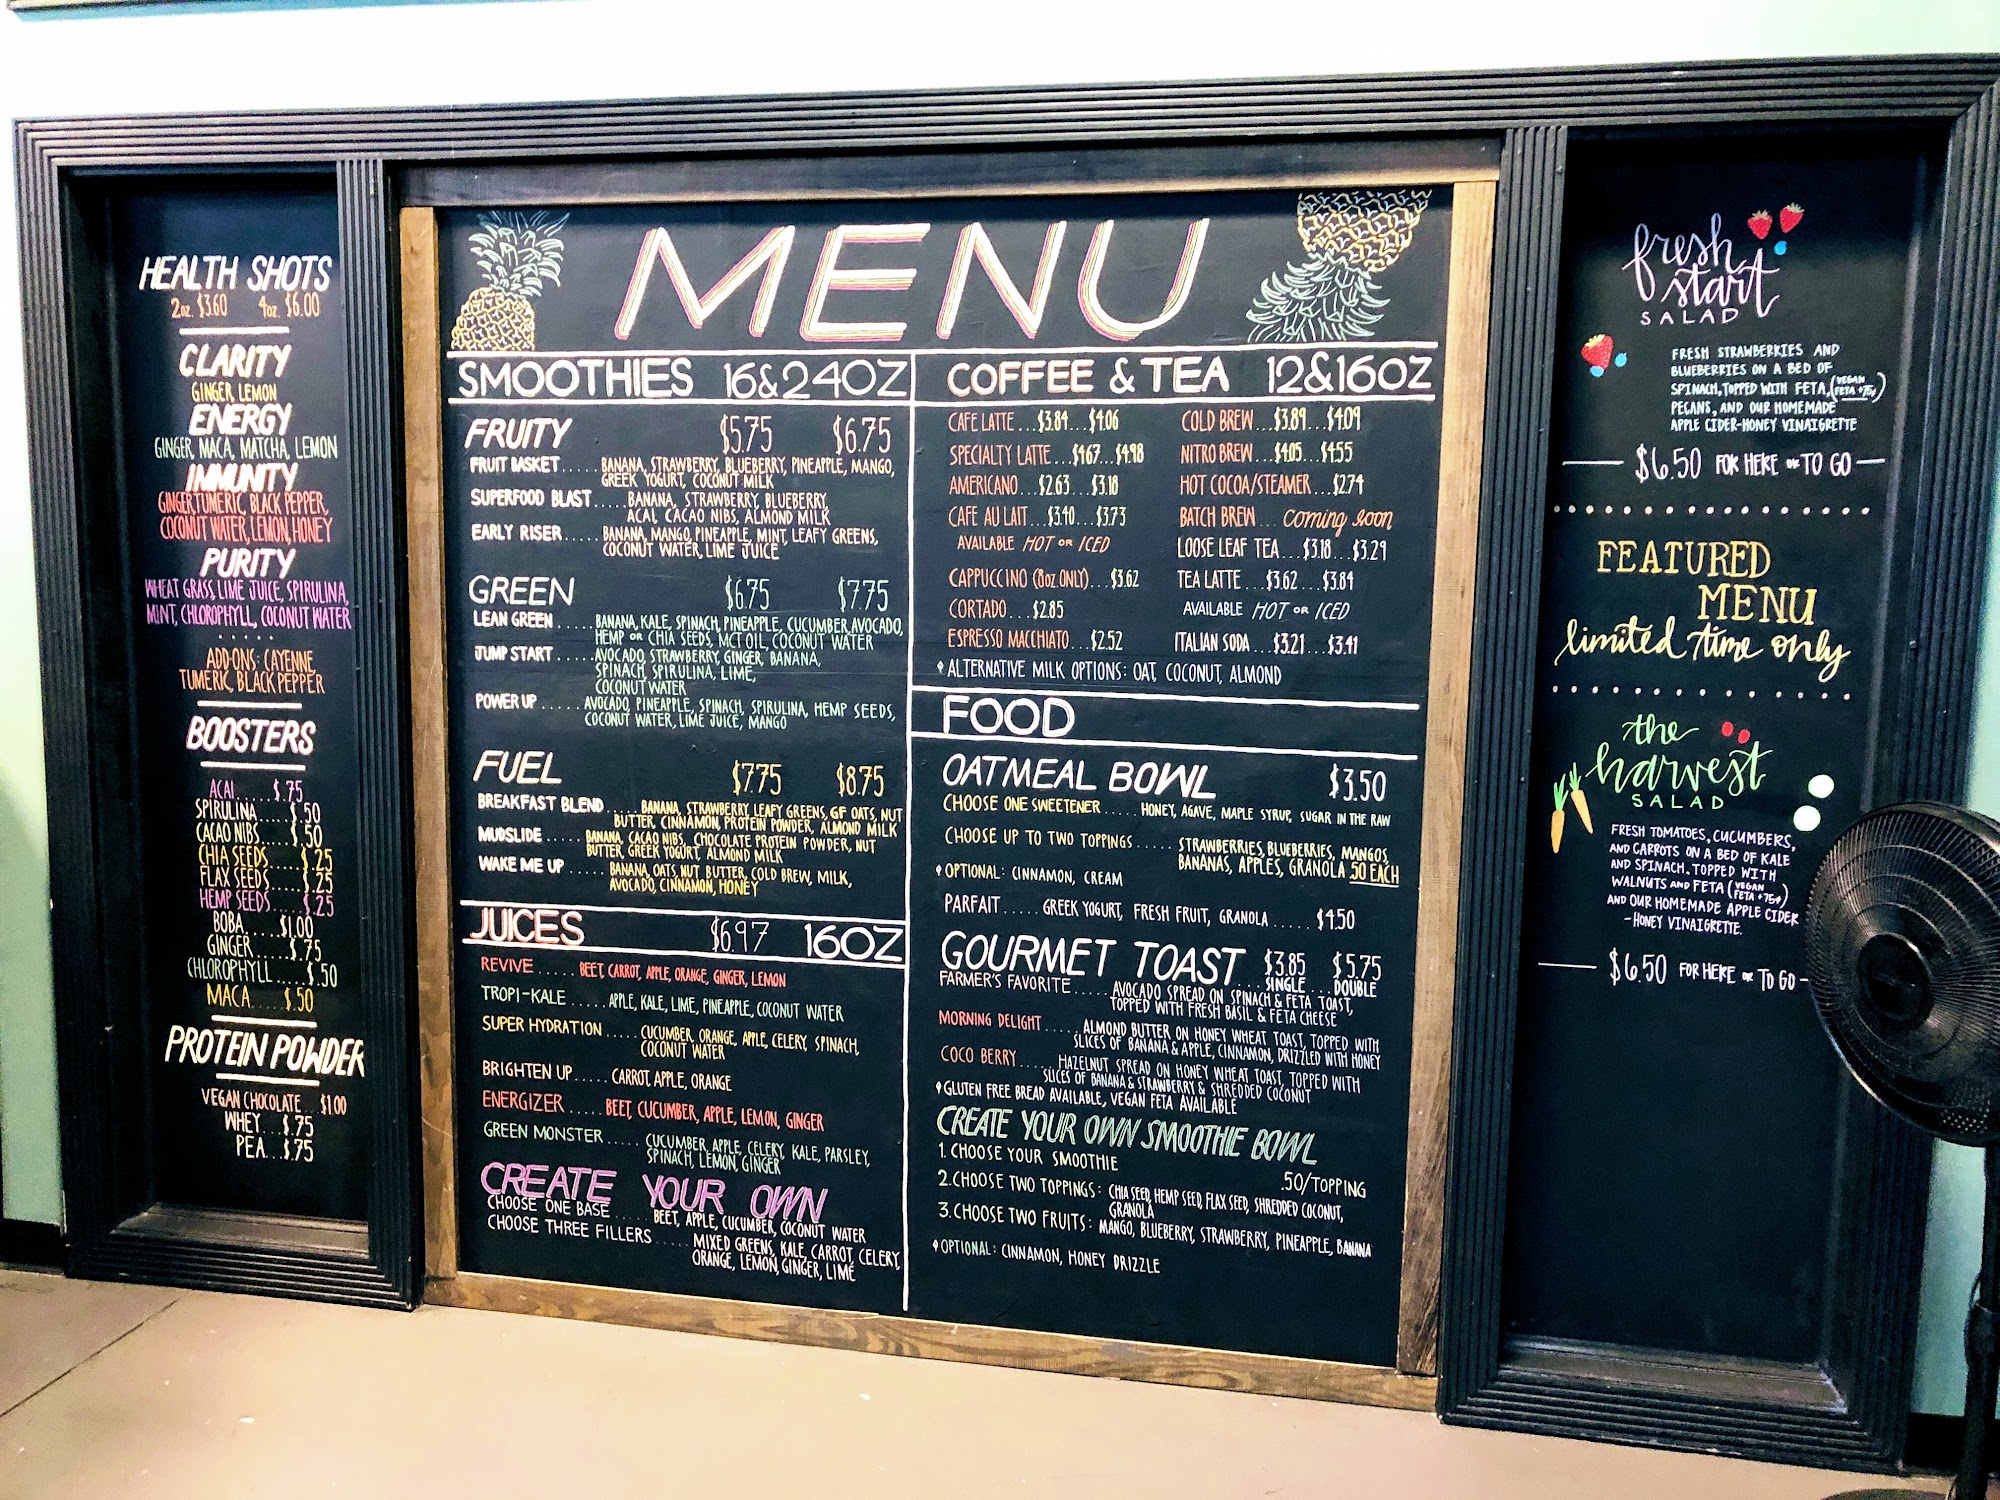 HEALTH SHOTS
2oz. $3.60 4oz. $6.00
CLARITY
GINGER, LEMON
ENERGY
GINGER, MACA, MATCHA, LEMON
IMMUNITY
GINGER, TUMERIC, BLACK PEPPER,
COCONUT WATER, LEMON, HONEY
PURITY
WHEAT GRASS, LIME JUICE, SPIRULINA,
MINT, CHLOROPHYLL, COCONUT WATER
.....
ADD-ONS: CAYENNE,
TUMERIC, BLACK PEPPER
BOOSTERS
ACAI......$.75
SPIRULINA.....$.50
CACAO NIBS....$.50
CHIA SEEDS....$.25
FLAX SEEDS....$.25
HEMP SEEDS....$.25
BOBA.....$1.00
GINGER.....$.75
CHLOROPHYLL.....$.50
MACA.....$.50
PROTEIN POWDER
VEGAN CHOCOLATE...$1.00
WHEY...$.75
PEA...$.75
MENU
SMOOTHIES 16&24OZ
FRUITY $5.75 $6.75
FRUIT BASKET.....BANANA, STRAWBERRY, BLUEBERRY, PINEAPPLE, MANGO,
GREEK YOGURT, COCONUT MILK
SUPERFOOD BLAST.....BANANA, STRAWBERRY, BLUEBERRY,
ACAI, CACAO NIBS, ALMOND MILK
EARLY RISER.....BANANA, MANGO, PINEAPPLE, MINT, LEAFY GREENS,
COCONUT WATER, LIME JUICE
GREEN $6.75 $7.75
LEAN GREEN.....BANANA, KALE, SPINACH, PINEAPPLE, CUCUMBER, AVOCADO,
HEMP OR CHIA SEEDS, MCT OIL, COCONUT WATER
JUMP START.....AVOCADO, STRAWBERRY, GINGER, BANANA,
SPINACH, SPIRULINA, LIME,
COCONUT WATER
POWER UP.....AVOCADO, PINEAPPLE, SPINACH, SPIRULINA, HEMP SEEDS,
COCONUT WATER, LIME JUICE, MANGO
FUEL $7.75 $8.75
BREAKFAST BLEND.....BANANA, STRAWBERRY, LEAFY GREENS, GF OATS, NUT
BUTTER, CINNAMON, PROTEIN POWDER, ALMOND MILK
MUDSLIDE.....BANANA, CACAO NIBS, CHOCOLATE PROTEIN POWDER, NUT
BUTTER, GREEK YOGURT, ALMOND MILK
WAKE ME UP.....BANANA, OATS, NUT BUTTER, COLD BREW, MILK,
AVOCADO, CINNAMON, HONEY
JUICES $6.97 16OZ
REVIVE.....BEET, CARROT, APPLE, ORANGE, GINGER, LEMON
TROPI-KALE.....APPLE, KALE, LIME, PINEAPPLE, COCONUT WATER
SUPER HYDRATION.....CUCUMBER, ORANGE, APPLE, CELERY, SPINACH,
COCONUT WATER
BRIGHTEN UP.....CARROT, APPLE, ORANGE
ENERGIZER.....BEET, CUCUMBER, APPLE, LEMON, GINGER
GREEN MONSTER.....CUCUMBER, APPLE, CELERY, KALE, PARSLEY,
SPINACH, LEMON, GINGER
CREATE YOUR OWN
CHOOSE ONE BASE.....BEET, APPLE, CUCUMBER, COCONUT WATER
CHOOSE THREE FILLERS.....MIXED GREENS, KALE, CARROT, CELERY,
ORANGE, LEMON, GINGER, LIME
COFFEE & TEA 12&16OZ
CAFE LATTE...$3.84...$4.06
SPECIALTY LATTE...$4.67...$4.98
AMERICANO...$2.63...$3.18
CAFE AU LAIT...$3.40...$3.73
AVAILABLE HOT OR ICED
CAPPUCCINO (8oz ONLY)...$3.62
CORTADO...$2.85
ESPRESSO MACCHIATO...$2.52
COLD BREW...$3.89...$4.09
NITRO BREW...$4.05...$4.55
HOT COCOA/STEAMER...$2.74
BATCH BREW...Coming soon
LOOSE LEAF TEA...$3.18...$3.29
TEA LATTE...$3.62...$3.84
AVAILABLE HOT OR ICED
ITALIAN SODA...$3.21...$3.41
ALTERNATIVE MILK OPTIONS: OAT, COCONUT, ALMOND
FOOD
OATMEAL BOWL $3.50
CHOOSE ONE SWEETENER.....HONEY, AGAVE, MAPLE SYRUP, SUGAR IN THE RAW
CHOOSE UP TO TWO TOPPINGS.....STRAWBERRIES, BLUEBERRIES, MANGOS,
BANANAS, APPLES, GRANOLA .50 EACH
OPTIONAL: CINNAMON, CREAM
PARFAIT.....GREEK YOGURT, FRESH FRUIT, GRANOLA.....$4.50
GOURMET TOAST $3.85 SINGLE...$5.75 DOUBLE
FARMER'S FAVORITE.....AVOCADO SPREAD ON SPINACH & FETA TOAST,
TOPPED WITH FRESH BASIL & FETA CHEESE
MORNING DELIGHT.....ALMOND BUTTER ON HONEY WHEAT TOAST, TOPPED WITH
SLICES OF BANANA & APPLE, CINNAMON, DRIZZLED WITH HONEY
COCO BERRY.....HAZELNUT SPREAD ON HONEY WHEAT TOAST, TOPPED WITH
SLICES OF BANANA & STRAWBERRY & SHREDDED COCONUT
GLUTEN FREE BREAD AVAILABLE, VEGAN FETA AVAILABLE
CREATE YOUR OWN SMOOTHIE BOWL
1. CHOOSE YOUR SMOOTHIE
.50/TOPPING
2. CHOOSE TWO TOPPINGS: CHIA SEED, HEMP SEED, FLAX SEED, SHREDDED COCONUT,
GRANOLA
3. CHOOSE TWO FRUITS: MANGO, BLUEBERRY, STRAWBERRY, PINEAPPLE, BANANA
OPTIONAL: CINNAMON, HONEY DRIZZLE
fresh
start
SALAD
FRESH STRAWBERRIES AND
BLUEBERRIES ON A BED OF
SPINACH, TOPPED WITH FETA, (VEGAN FETA +75¢)
PECANS, AND OUR HOMEMADE
APPLE CIDER-HONEY VINAIGRETTE
$6.50 FOR HERE OR TO GO
FEATURED
MENU
limited time only
the
harvest
SALAD
FRESH TOMATOES, CUCUMBERS,
AND CARROTS ON A BED OF KALE
AND SPINACH. TOPPED WITH
WALNUTS AND FETA (VEGAN FETA +75¢)
AND OUR HOMEMADE APPLE CIDER
-HONEY VINAIGRETTE.
$6.50 FOR HERE OR TO GO